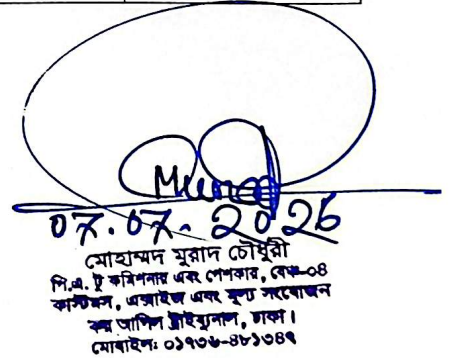 Murad
07.07.2026
মোহাম্মদ মুরাদ চৌধুরী
পি.এ. টু কমিশনার এবং পেশকার, বেঞ্চ-০৪
কাস্টমস, এক্সাইজ এবং মূল্য সংযোজন
কর আপিল ট্রাইব্যুনাল, ঢাকা।
মোবাইল: ০১৭৩৬-৪৮১৩৪৭